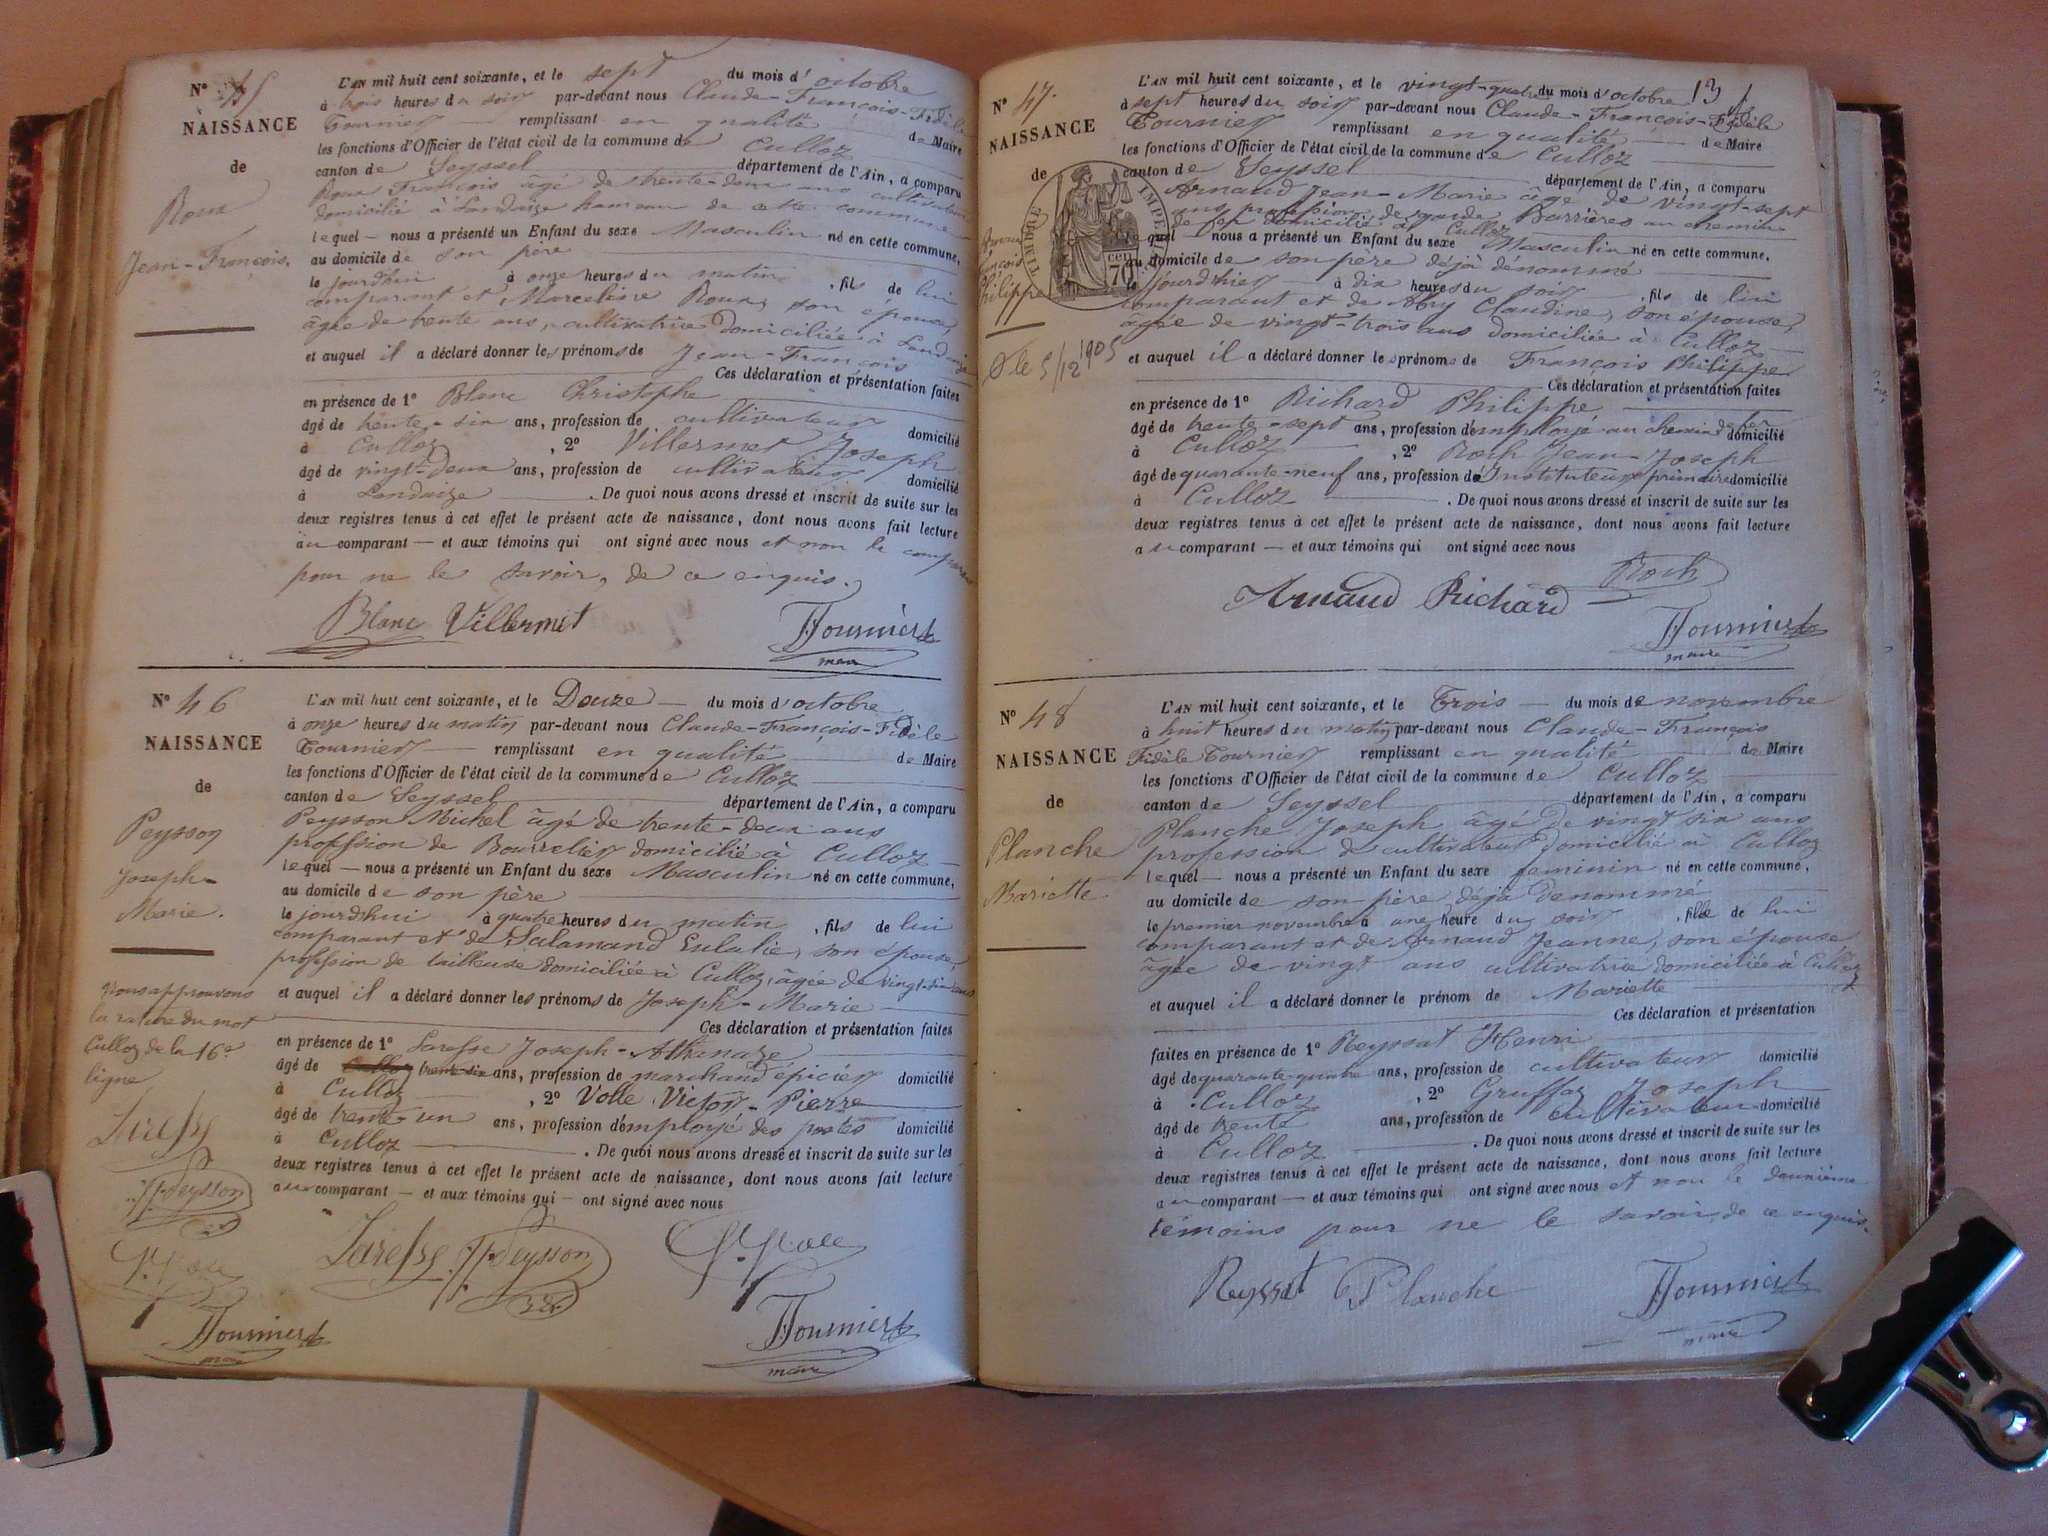 N° 45
NAISSANCE
de
Roux
Jean-François.
L'AN mil huit cent soixante, et le sept du mois d'octobre
à trois heures du soir par-devant nous Claude-François-Fidèle
Tournier remplissant en qualité de Maire
les fonctions d'Officier de l'état civil de la commune de Culloz
canton de Seyssel département de l'Ain, a comparu
Roux François âgé de trente-deux ans cultivateur
domicilié à Landaize hameau de cette commune
lequel — nous a présenté un Enfant du sexe Masculin né en cette commune,
au domicile de son père
le jourd'hui à onze heures du matin, fils de lui
comparant et Marceline Roux, son épouse,
âgée de trente ans, cultivatrice domiciliée à Landaize
et auquel il a déclaré donner les prénoms de Jean-François
Ces déclaration et présentation faites
en présence de 1° Blanc Christophe
âgé de trente-six ans, profession de cultivateur domicilié
à Culloz, 2° Villermet Joseph
âgé de vingt-deux ans, profession de cultivateur domicilié
à Landaize. De quoi nous avons dressé et inscrit de suite sur les
deux registres tenus à cet effet le présent acte de naissance, dont nous avons fait lecture
au comparant — et aux témoins qui ont signé avec nous et non le comparant
pour ne le savoir, de ce enquis.
Blanc Villermet Tournier
maire
N° 46
NAISSANCE
de
Peysson
Joseph-
Marie.
L'AN mil huit cent soixante, et le Douze — du mois d'octobre
à onze heures du matin par-devant nous Claude-François-Fidèle
Tournier remplissant en qualité de Maire
les fonctions d'Officier de l'état civil de la commune de Culloz
canton de Seyssel département de l'Ain, a comparu
Peysson Michel âgé de trente-deux ans
profession de Bourrelier domicilié à Culloz —
lequel — nous a présenté un Enfant du sexe Masculin né en cette commune,
au domicile de son père
le jourd'hui à quatre heures du matin, fils de lui
comparant et de Salamand Eulalie, son épouse,
profession de tailleuse domiciliée à Culloz, âgée de vingt-six ans
et auquel il a déclaré donner les prénoms de Joseph-Marie
Ces déclaration et présentation faites
en présence de 1° Laresse Joseph-Athanaze
âgé de Culloz trente-six ans, profession de marchand épicier domicilié
à Culloz, 2° Volle Victor-Pierre
âgé de trente-un ans, profession d'employé des postes domicilié
à Culloz. De quoi nous avons dressé et inscrit de suite sur les
deux registres tenus à cet effet le présent acte de naissance, dont nous avons fait lecture
au comparant — et aux témoins qui — ont signé avec nous
Nous approuvons
la rature du mot
Culloz de la 16e
ligne
Laresse
Peysson
Tournier
maire
Laresse Peysson
Tournier
maire
13
N° 47.
NAISSANCE
de
Arnaud
François
Philippe
D le 5/12 1905
TIMBRE IMPERIAL
70 cen
L'AN mil huit cent soixante, et le vingt-quatre du mois d'octobre
à sept heures du soir par-devant nous Claude-François-Fidèle
Tournier remplissant en qualité de Maire
les fonctions d'Officier de l'état civil de la commune de Culloz
canton de Seyssel département de l'Ain, a comparu
Arnaud Jean-Marie âgé de vingt-sept
ans profession de garde Barrières au chemin
de fer domicilié à Culloz
lequel nous a présenté un Enfant du sexe Masculin né en cette commune.
au domicile de son père déjà dénommé
à dix heures du soir, fils de lui
comparant et de Aby Claudine, son épouse,
âgée de vingt-trois ans domiciliée à Culloz
et auquel il a déclaré donner les prénoms de François Philippe
Ces déclaration et présentation faites
en présence de 1° Richard Philippe
âgé de trente-sept ans, profession d'employé au chemin de fer domicilié
à Culloz, 2° Roch Jean-Joseph
âgé de quarante-neuf ans, profession d'Instituteur primaire domicilié
à Culloz. De quoi nous avons dressé et inscrit de suite sur les
deux registres tenus à cet effet le présent acte de naissance, dont nous avons fait lecture
au comparant — et aux témoins qui ont signé avec nous
Arnaud Richard Roch
Tournier
maire
N° 48
NAISSANCE
de
Planche
Mariette
L'AN mil huit cent soixante, et le Trois — du mois de novembre
à huit heures du matin par-devant nous Claude-François
Fidèle Tournier remplissant en qualité de Maire
les fonctions d'Officier de l'état civil de la commune de Culloz
canton de Seyssel département de l'Ain, a comparu
Planche Joseph âgé de vingt six ans
profession de cultivateur domicilié à Culloz
lequel — nous a présenté un Enfant du sexe feminin né en cette commune,
au domicile de son père déjà dénommé
le premier novembre à une heure du soir, fille de lui
comparant et de Arnaud Jeanne, son épouse
âgée de vingt ans cultivatrice domiciliée à Culloz
et auquel il a déclaré donner le prénom de Mariette
Ces déclaration et présentation
faites en présence de 1° Reyssat Henri
âgé de quarante-quatre ans, profession de cultivateur domicilié
à Culloz, 2° Gruffaz Joseph
âgé de trente ans, profession de cultivateur domicilié
à Culloz. De quoi nous avons dressé et inscrit de suite sur les
deux registres tenus à cet effet le présent acte de naissance, dont nous avons fait lecture
au comparant — et aux témoins qui ont signé avec nous et non le deuxième
témoins pour ne le savoir de ce enquis.
Reyssat Planche Tournier
maire